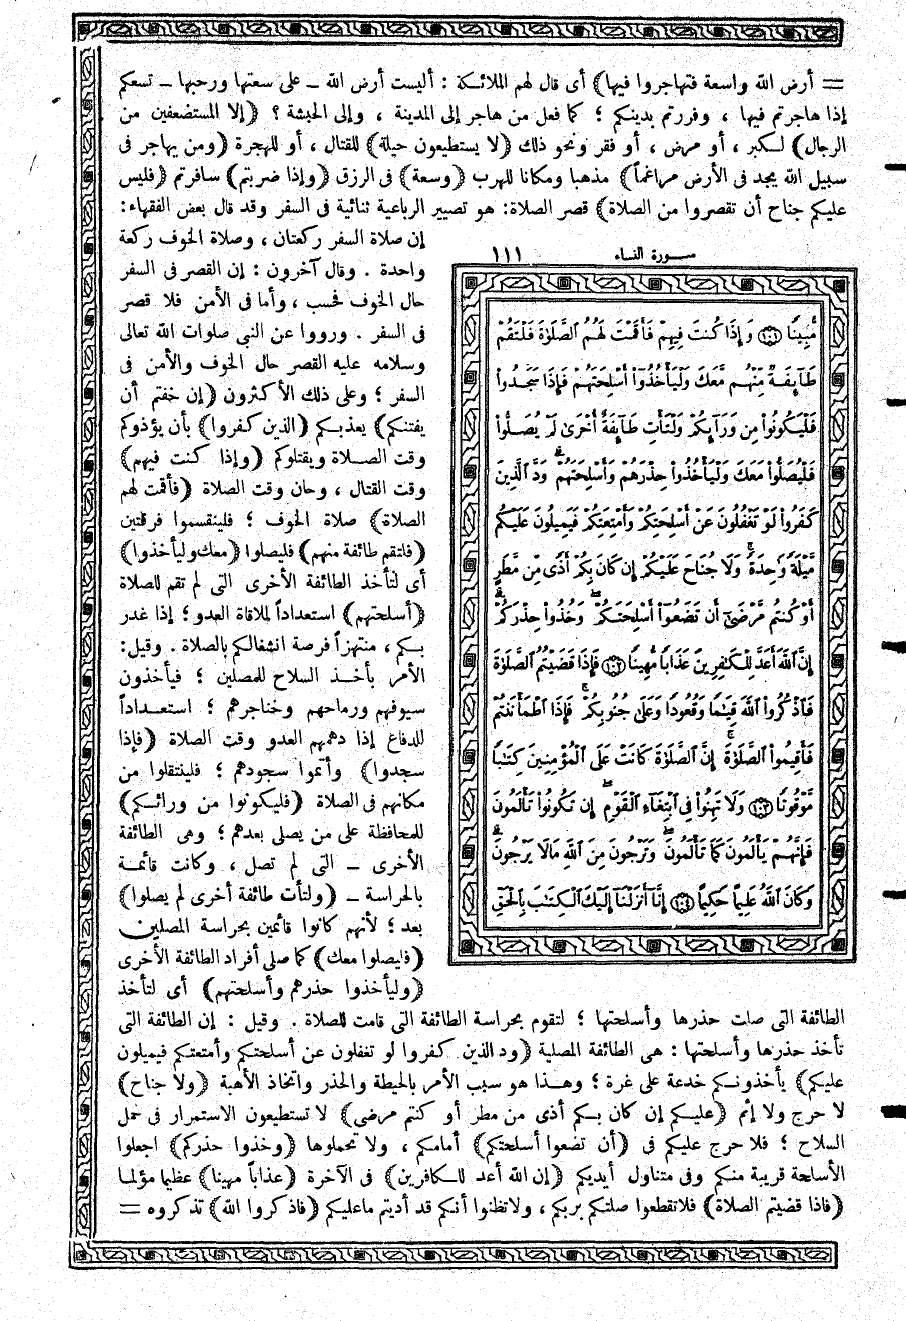 = أرض الله واسعة فتهاجروا فيها) أى قال لهم الملائكة : أليست أرض الله ــ على سعتها ورحبها ــ تسعكم
إذا هاجرتم فيها ، وفررتم بدينكم ؛ كما فعل من هاجر إلى المدينة ، وإلى الحبشة ؟ (إلا المستضعفين من
الرجال) لكبر ، أو مرض ، أو فقر ونحو ذلك (لا يستطيعون حيلة) للقتال ، أو للهجرة (ومن يهاجر فى
سبيل الله يجد فى الأرض مراغماً) مذهبا ومكانا للهرب (وسعة) فى الرزق (وإذا ضربتم) سافرتم (فليس
عليكم جناح أن تقصروا من الصلاة) قصر الصلاة: هو تصيير الرباعية ثنائية فى السفر وقد قال بعض الفقهاء:
إن صلاة السفر ركعتان ، وصلاة الخوف ركعة
واحدة . وقال آخرون : إن القصر فى السفر
حال الخوف فحسب ، وأما فى الأمن فلا قصر
فى السفر . ورووا عن النبى صلوات الله تعالى
وسلامه عليه القصر حال الخوف والأمن فى
السفر ؛ وعلى ذلك الأكثرون (إن خفتم أن
يفتنكم) يعذبكم (الذين كفروا) بأن يؤذوكم
وقت الصلاة ويقتلوكم (وإذا كنت فيهم)
وقت القتال ، وحان وقت الصلاة (فأقمت لهم
الصلاة) صلاة الخوف ؛ فلينقسموا فرقتين
(فلتقم طائفة منهم) فليصلوا (معك وليأخذوا)
أى لتأخذ الطائفة الأخرى التى لم تقم للصلاة
(أسلحتهم) استعداداً لملاقاة العدو ؛ إذا غدر
بكم ، منتهزاً فرصة انشغالكم بالصلاة . وقيل:
الأمر بأخذ السلاح للمصلين ؛ فيأخذون
سيوفهم ورماحهم وخناجرهم ؛ استعداداً
للدفاع إذا دهمهم العدو وقت الصلاة (فإذا
سجدوا) وأتموا سجودهم ؛ فلينتقلوا من
مكانهم فى الصلاة (فليكونوا من ورائكم)
للمحافظة على من يصلى بعدهم ؛ وهى الطائفة
الأخرى ــ التى لم تصل ، وكانت قائمة
بالحراسة ــ (ولتأت طائفة أخرى لم يصلوا)
بعد ؛ لأنهم كانوا قائمين بحراسة المصلين
(فليصلوا معك) كما صلى أفراد الطائفة الأخرى
(وليأخذوا حذرهم وأسلحتهم) أى لتأخذ
سورة النساء ١١١
مُّبِينًا ﴿١٠١﴾ وَإِذَا كُنتَ فِيهِمْ فَأَقَمْتَ لَهُمُ ٱلصَّلَوٰةَ فَلْتَقُمْ
طَآئِفَةٌ مِّنْهُم مَّعَكَ وَلْيَأْخُذُوٓا۟ أَسْلِحَتَهُمْ فَإِذَا سَجَدُوا۟
فَلْيَكُونُوا۟ مِن وَرَآئِكُمْ وَلْتَأْتِ طَآئِفَةٌ أُخْرَىٰ لَمْ يُصَلُّوا۟
فَلْيُصَلُّوا۟ مَعَكَ وَلْيَأْخُذُوا۟ حِذْرَهُمْ وَأَسْلِحَتَهُمْ ۗ وَدَّ ٱلَّذِينَ
كَفَرُوا۟ لَوْ تَغْفُلُونَ عَنْ أَسْلِحَتِكُمْ وَأَمْتِعَتِكُمْ فَيَمِيلُونَ عَلَيْكُم
مَّيْلَةً وَٰحِدَةً ۚ وَلَا جُنَاحَ عَلَيْكُمْ إِن كَانَ بِكُمْ أَذًى مِّن مَّطَرٍ
أَوْ كُنتُم مَّرْضَىٰٓ أَن تَضَعُوٓا۟ أَسْلِحَتَكُمْ ۖ وَخُذُوا۟ حِذْرَكُمْ ۗ
إِنَّ ٱللَّهَ أَعَدَّ لِلْكَٰفِرِينَ عَذَابًا مُّهِينًا ﴿١٠٢﴾ فَإِذَا قَضَيْتُمُ ٱلصَّلَوٰةَ
فَٱذْكُرُوا۟ ٱللَّهَ قِيَٰمًا وَقُعُودًا وَعَلَىٰ جُنُوبِكُمْ ۚ فَإِذَا ٱطْمَأْنَنتُمْ
فَأَقِيمُوا۟ ٱلصَّلَوٰةَ ۚ إِنَّ ٱلصَّلَوٰةَ كَانَتْ عَلَى ٱلْمُؤْمِنِينَ كِتَٰبًا
مَّوْقُوتًا ﴿١٠٣﴾ وَلَا تَهِنُوا۟ فِى ٱبْتِغَآءِ ٱلْقَوْمِ ۖ إِن تَكُونُوا۟ تَأْلَمُونَ
فَإِنَّهُمْ يَأْلَمُونَ كَمَا تَأْلَمُونَ ۖ وَتَرْجُونَ مِنَ ٱللَّهِ مَا لَا يَرْجُونَ ۗ
وَكَانَ ٱللَّهُ عَلِيمًا حَكِيمًا ﴿١٠٤﴾ إِنَّآ أَنزَلْنَآ إِلَيْكَ ٱلْكِتَٰبَ بِٱلْحَقِّ
الطائفة التى صلت حذرها وأسلحتها ؛ لتقوم بحراسة الطائفة التى قامت للصلاة . وقيل : إن الطائفة التى
تأخذ حذرها وأسلحتها : هى الطائفة المصلية (ود الذين كفروا لو تغفلون عن أسلحتكم وأمتعتكم فيميلون
عليكم) يأخذونكم خدعة على غرة ؛ وهذا هو سبب الأمر بالحيطة والحذر واتخاذ الأهبة (ولا جناح)
لا حرج ولا إثم (عليكم إن كان بكم أذى من مطر أو كنتم مرضى) لا تستطيعون الاستمرار فى حمل
السلاح ؛ فلا حرج عليكم فى (أن تضعوا أسلحتكم) أمامكم ، ولا تحملوها (وخذوا حذركم) اجعلوا
الأسلحة قريبة منكم وفى متناول أيديكم (إن الله أعد للكافرين) فى الآخرة (عذاباً مهيناً) عظيما مؤلما
(فاذا قضيتم الصلاة) فلا تقطعوا صلتكم بربكم ، ولا تظنوا أنكم قد أديتم ما عليكم (فاذكروا الله) تذكروه =